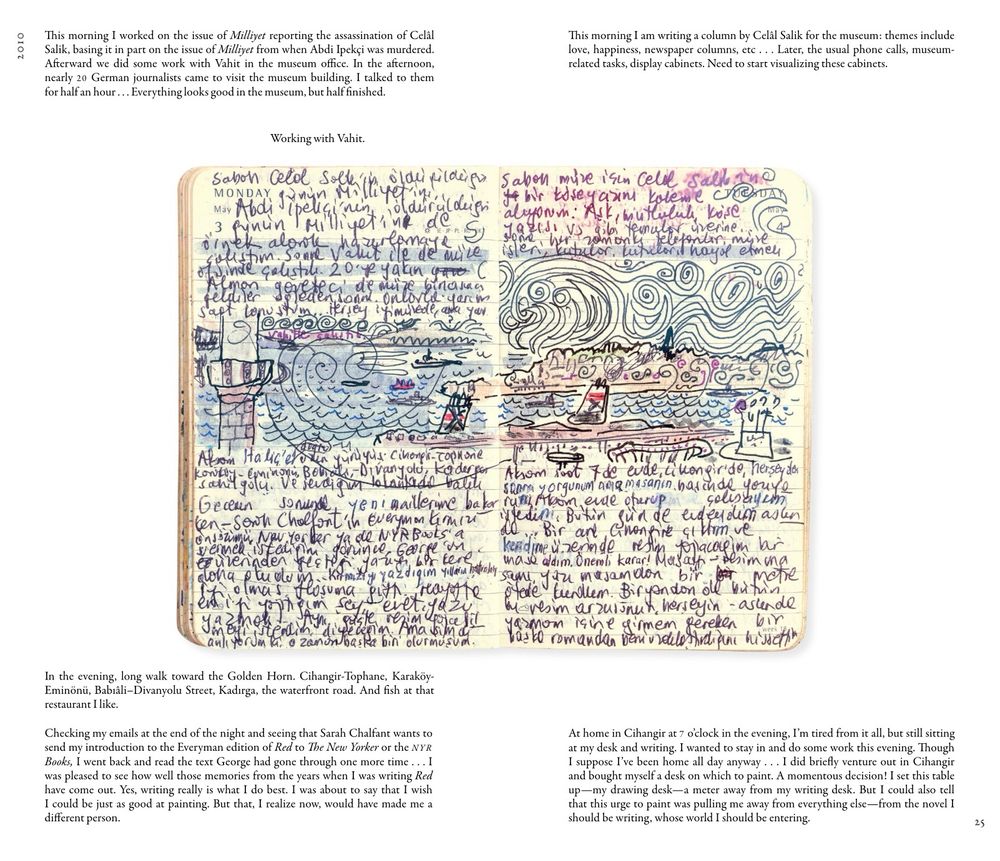 2010
This morning I worked on the issue of Milliyet reporting the assassination of Celâl
Salik, basing it in part on the issue of Milliyet from when Abdi Ipekçi was murdered.
Afterward we did some work with Vahit in the museum office. In the afternoon,
nearly 20 German journalists came to visit the museum building. I talked to them
for half an hour . . . Everything looks good in the museum, but half finished.
This morning I am writing a column by Celâl Salik for the museum: themes include
love, happiness, newspaper columns, etc . . . Later, the usual phone calls, museum-
related tasks, display cabinets. Need to start visualizing these cabinets.
Working with Vahit.
sabah Celâl Salik'in öldürüldüğü
MONDAY günün Milliyet'ini
May Abdi İpekçi'nin öldürüldüğü
3 günün Milliyet'ini de
örnek alarak hazırlamaya
çalıştım. Sonra Vahit ile de müze
ofisinde çalıştık. 20'ye yakın
Alman gazeteci de müze binasına
geldiler
saat konuştum... Herşey iyi müzede, ama yarı
vahitle çalışma
Akşam Haliç'e uzun yürüyüş. Cihangir-Tophane
Karaköy-Eminönü, Babıali-Divanyolu, Kadırga
sahil yolu. Ve sevdiğim lokantada balık
Gecenin sonunda yeni maillerime bakar
ken Sarah Chalfant'ın Everyman Kırmızı
önsözümü New Yorker ya da NYR Books'a
vermek istediğini görünce, George'un
üzerinden geçtiği yazıyı bir kere
daha okudum. Kırmızı'yı yazdığım yılların
iyi olması hoşuma gitti. Hayatta
en iyi yaptığım şey evet, yazı
yazmak.
istedim, diyecektim. Ama şimdi
anlıyorum ki o zaman başka biri olurmuşum.
sabah müze için Celâl Salik'in
bir köşe yazısı kaleme TUESDAY
alıyorum. Aşk, mutluluk, köşe May
yazısı vs gibi temalar üzerine. 4
Sonra her zamanki telefonlar, müze
işleri, kutular. Kutuları hayal etmek
Akşam saat 7 de evde, Cihangir'de, herşeyden
sonra yorgunum ama masanın başında yazıyo
rum. Akşam evde oturup çalışayım
istedim. Bütün gün de evdeydim aslın
da... Bir ara Cihangir'e çıktım ve
kendime üzerinde resim yapacağım bir
masa aldım. Önemli karar! Masayı - resim ma
samı, yazı masamdan bir metre
öteye kurdum. Bir yandan da bütün
bu resim arzusunun, herşeyin - aslında
yazmam içine girmem gereken bir
başka romandan beni uzaklaştırdığını hissettim
In the evening, long walk toward the Golden Horn. Cihangir-Tophane, Karaköy-
Eminönü, Babıâli–Divanyolu Street, Kadırga, the waterfront road. And fish at that
restaurant I like.
Checking my emails at the end of the night and seeing that Sarah Chalfant wants to
send my introduction to the Everyman edition of Red to The New Yorker or the NYR
Books, I went back and read the text George had gone through one more time . . . I
was pleased to see how well those memories from the years when I was writing Red
have come out. Yes, writing really is what I do best. I was about to say that I wish
I could be just as good at painting. But that, I realize now, would have made me a
different person.
At home in Cihangir at 7 o'clock in the evening, I'm tired from it all, but still sitting
at my desk and writing. I wanted to stay in and do some work this evening. Though
I suppose I've been home all day anyway . . . I did briefly venture out in Cihangir
and bought myself a desk on which to paint. A momentous decision! I set this table
up—my drawing desk—a meter away from my writing desk. But I could also tell
that this urge to paint was pulling me away from everything else—from the novel I
should be writing, whose world I should be entering.
25